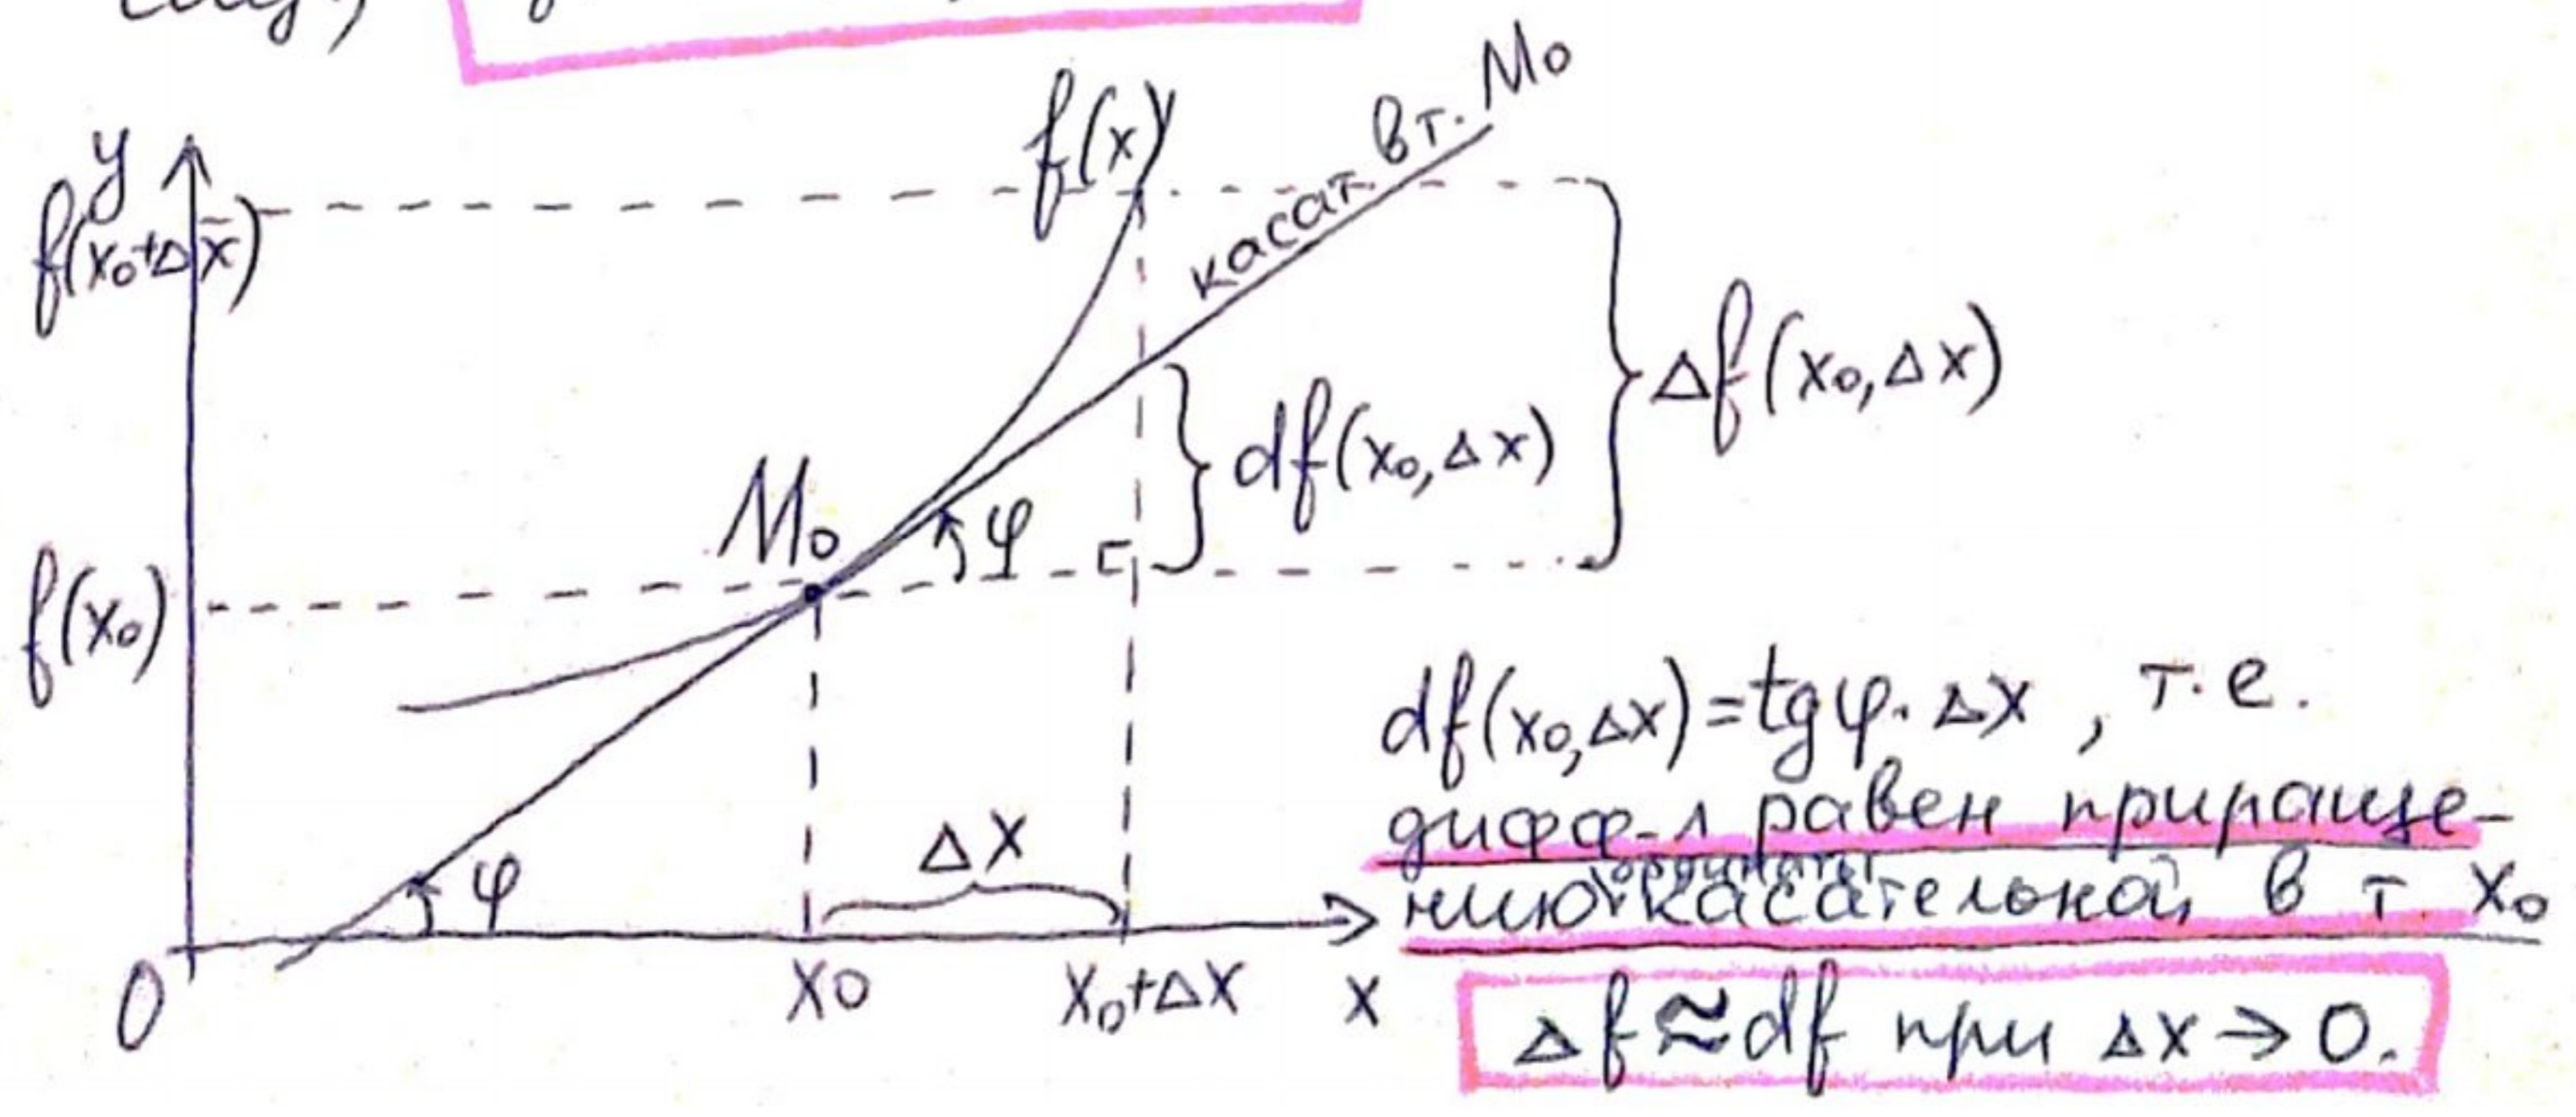 y
f(x)
касат. в т. M₀
f(x₀+Δx)
M₀
φ
df(x₀,Δx)
Δf(x₀,Δx)
f(x₀)
df(x₀,Δx)=tgφ·Δx, т.е.
дифф-л равен прираще-
ординаты
нию касательной в т. x₀
φ
Δx
0
x₀
x₀+Δx
x
Δf≈df при Δx→0.